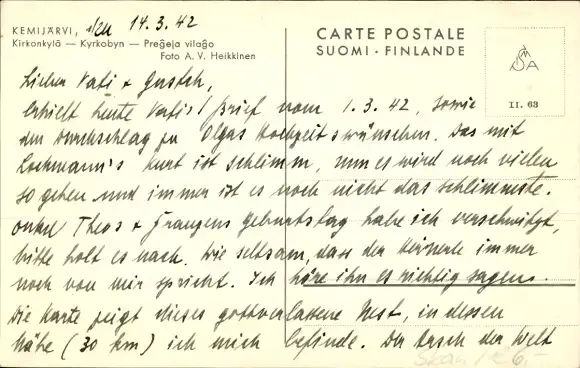 KEMIJÄRVI, 14.3.42
Kirkonkylä — Kyrkobyn — Preĝeja vilaĝo
Foto A. V. Heikkinen
CARTE POSTALE
SUOMI · FINLANDE
SA
II. 63
Lieber Vati + Gustch,
Erhielt heute Vatis Brief vom 1.3.42, sowie
den Durchschlag zu Olgas Hochzeitswünschen. Das mit
Lochmann's Kurt ist schlimm, nun es wird noch vielen
so gehen und immer ist es noch nicht das schlimmste.
Onkel Theos + Franzens Geburtstag habe ich verschwitzt,
bitte holt es nach. Wie seltsam, dass der immer
noch von mir spricht. Ich höre ihn es richtig sagen.
Die Karte zeigt dieses gottverlassene Nest, in dessen
Nähe (30 km) ich mich befinde. Der Arsch der Welt